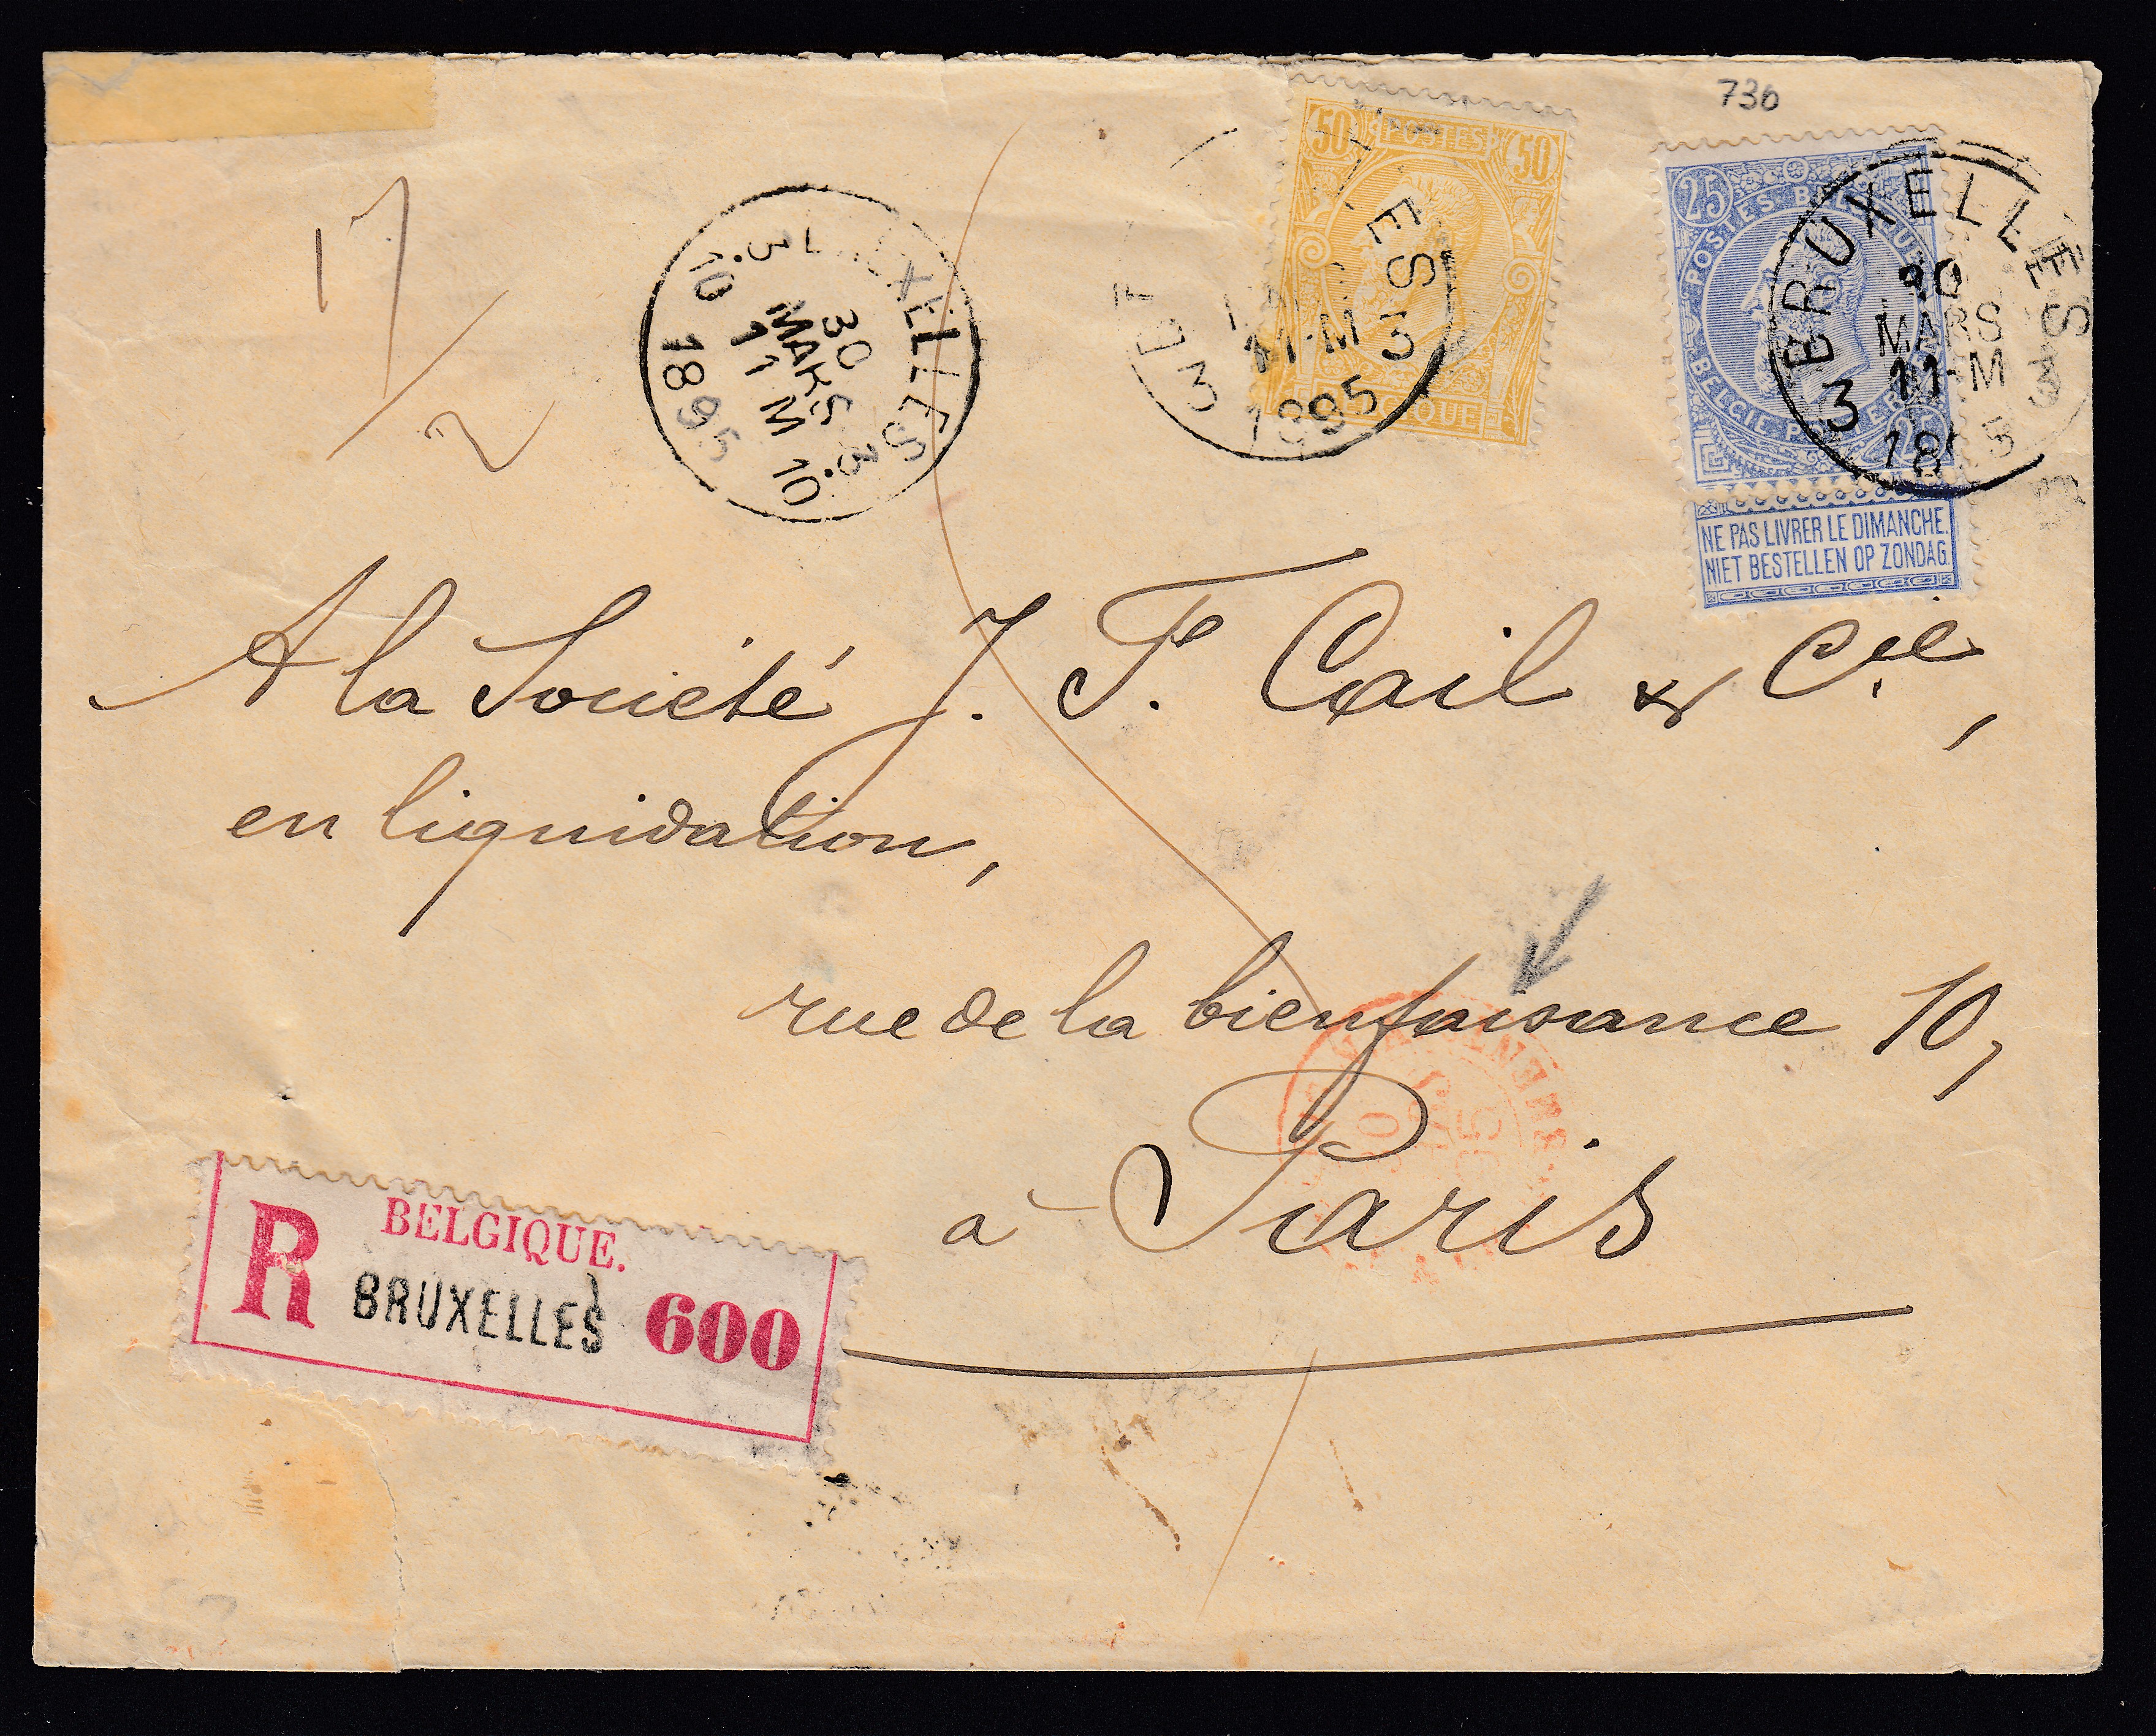 730
50 POSTES 50
25 25
POSTES BELGIQUE
BELGIE POSTERIJEN
NE PAS LIVRER LE DIMANCHE.
NIET BESTELLEN OP ZONDAG.
17/2
BRUXELLES
30
MARS
11 M
3 10 3 10
1895
LES
11-M
3 3
1895
BRUXELLES
30
MARS
11-M
3 3
1895
A la Société J. F. Cail & Cie,
en liquidation,
rue de la bienfaisance 10,
à Paris
BELGIQUE.
R BRUXELLES 600